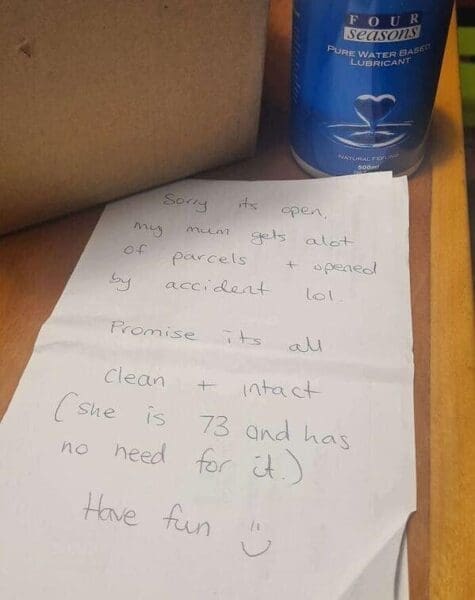 FOUR
seasons
PURE WATER BASED
LUBRICANT
500ml
Sorry its open,
my mum gets alot
of parcels + opened
by accident lol.
Promise its all
clean + intact
(she is 73 and has
no need for it.)
Have fun